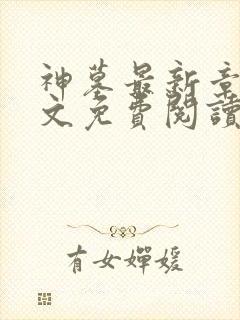 神墓最新章
文免費閱讀
有女嬋媛